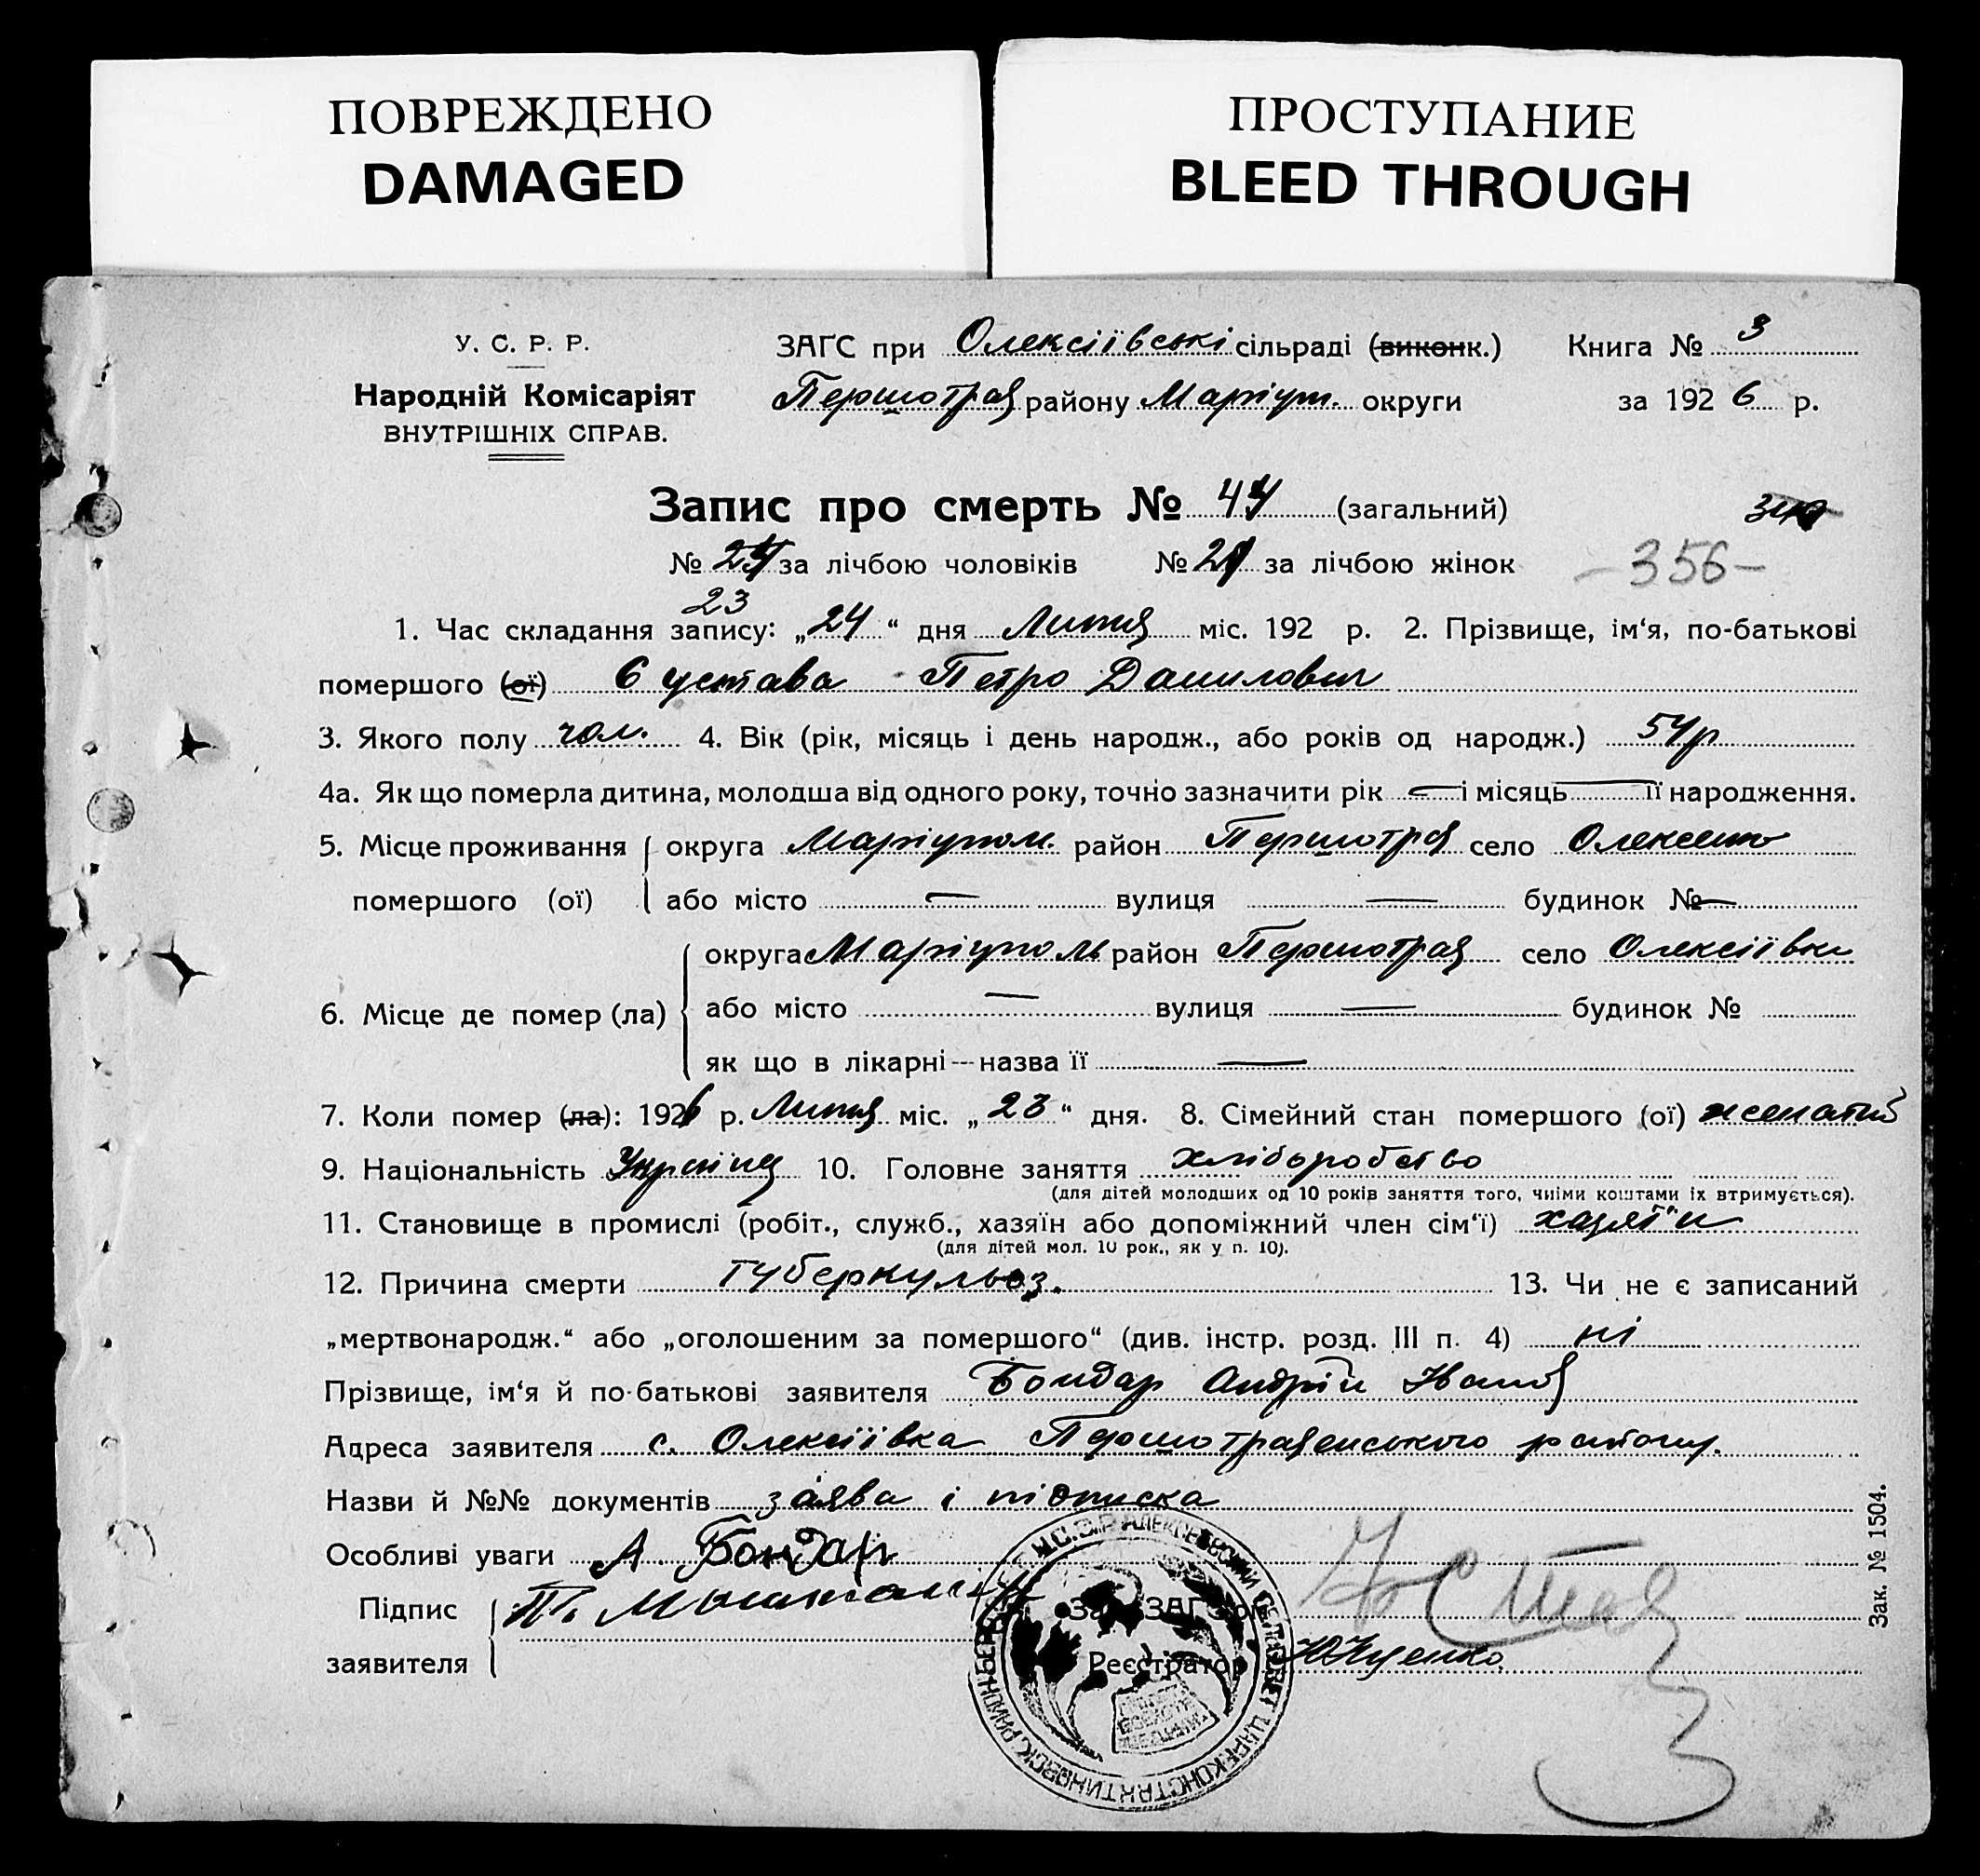 ПОВРЕЖДЕНО
DAMAGED
ПРОСТУПАНИЕ
BLEED THROUGH
У. С. Р. Р.
Народній Комісаріят
ВНУТРІШНІХ СПРАВ.
ЗАГС при Олексіївські сільраді (виконк.)
Першотрав району Маріуп. округи
Книга № 3
за 1926 р.
Запис про смерть № 44 (загальний)
№ за лічбою чоловіків № за лічбою жінок
-356-
23
1. Час складання запису: „24“ дня Лютня міс. 192 р. 2. Прізвище, ім‘я, по-батькові
помершого (ої) Сустава Петро Данилович
3. Якого полу чол. 4. Вік (рік, місяць і день народж., або років од народж.) 54р
4а. Як що померла дитина, молодша від одного року, точно зазначити рік — і місяць — її народження.
5. Місце проживання помершого (ої) округа Маріупол. район Першотрав село
або місто — вулиця — будинок № —
6. Місце де помер (ла) округа Маріуполь район Першотрав село Олексіївки
або місто — вулиця — будинок №
як що в лікарні --- назва її —
7. Коли помер (ла): 1926 р. Лютня міс. „23“ дня. 8. Сімейний стан помершого (ої) женатий
9. Національність Україна 10. Головне заняття хліборобство
(для дітей молодших од 10 років заняття того, чиїми коштами їх втримується).
11. Становище в промислі (робіт., служб., хазяїн або допоміжний член сім‘ї) хазяїн
(для дітей мол. 10 рок., як у п. 10).
12. Причина смерти туберкульоз. 13. Чи не є записаний
„мертвонародж.“ або „оголошеним за помершого“ (див. інстр. розд. III п. 4) ні
Прізвище, ім‘я й по-батькові заявителя Бондар Андрій Іванов
Адреса заявителя с. Олексіївка Першотравенського району.
Назви й №№ документів заява і підписка
Особливі уваги А. Бондар
Підпис заявителя
Зав. ЗАГС‘ом
Реєстратор
Зак. № 1504.